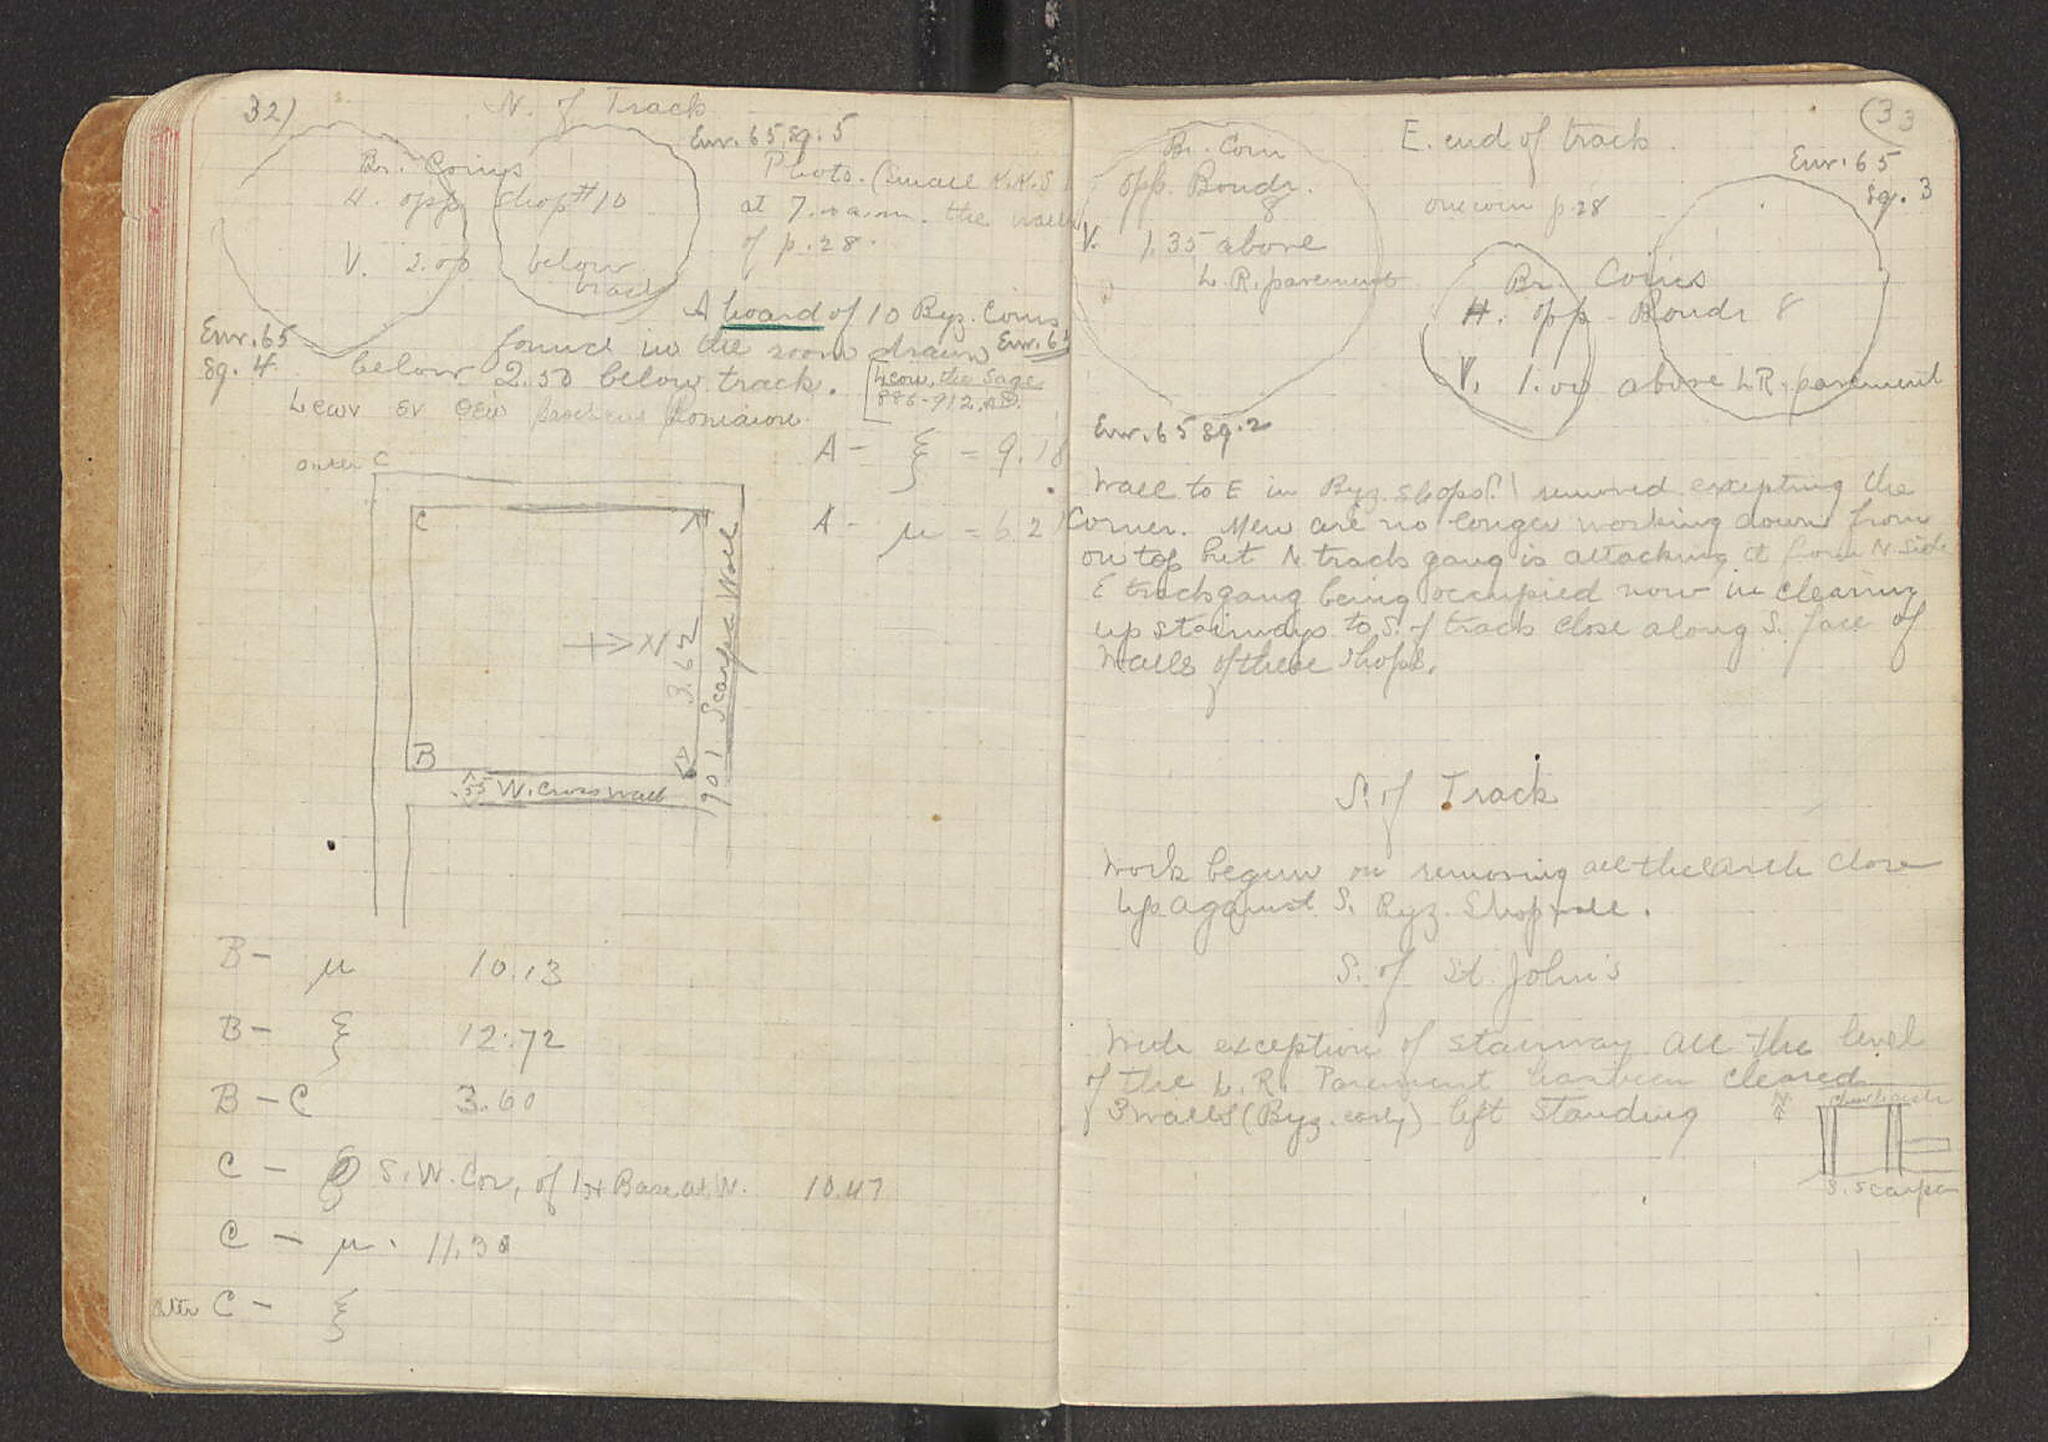 32)
N. of Track
Env. 65 sq. 5
Br. Coins
H. opp. Shop #10
V. 2.00 below track
Photo. (Small
at 7. a.m. the walls
of p. 28.
A hoard of 10 Byz. Coins
found in the room drawn Env. 65
Env. 65
Sq. 4
below 2.50 below track.
[Leow, the Sage
886-912 AD.
Leωv εv Θεω
A - ξ = 9.18
A - μ = 6.21
outer C
C
A
→ N
3.62
1.06 Scarped Wall
B
.55 W. Cross wall
B - μ 10.13
B - ξ 12.72
B - C 3.60
C - S.W. Cor. of 1st Base at W. 10.47
C - μ. 11.38
outer C - ξ
(33
E. end of track
Env. 65
Sq. 3
Br. Coin
opp. Boudr.
8
V. 1.35 above
L.R. pavement
one coin p. 28
Br. Coins
H. opp. Boudr 8
V. 1.00 above L.R. pavement
Env. 65 sq. 2
Wall to E in Byz. shops removed excepting the
corner. Men are no longer working down from
on top but N track gang is attacking it from N side
E track gang being occupied now in clearing
up stairways to S. of track close along S. face of
walls of these shops.
S. of Track
Work begun on removing all the earth close
up against S. Byz. Shop wall.
S. of St. John's
With exception of stairway all the level
of the L. R. Pavement has been cleared
3 walls (Byz. early) left standing
N
S. scarp